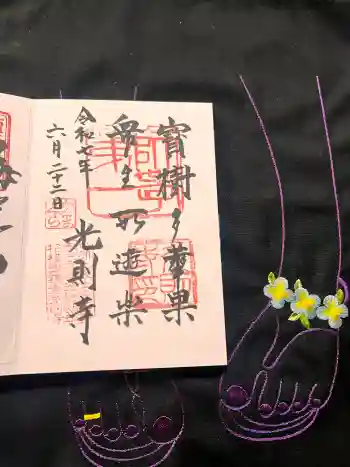 寳樹多華果
衆生所遊楽
令和七年
六月二十二日
光則寺